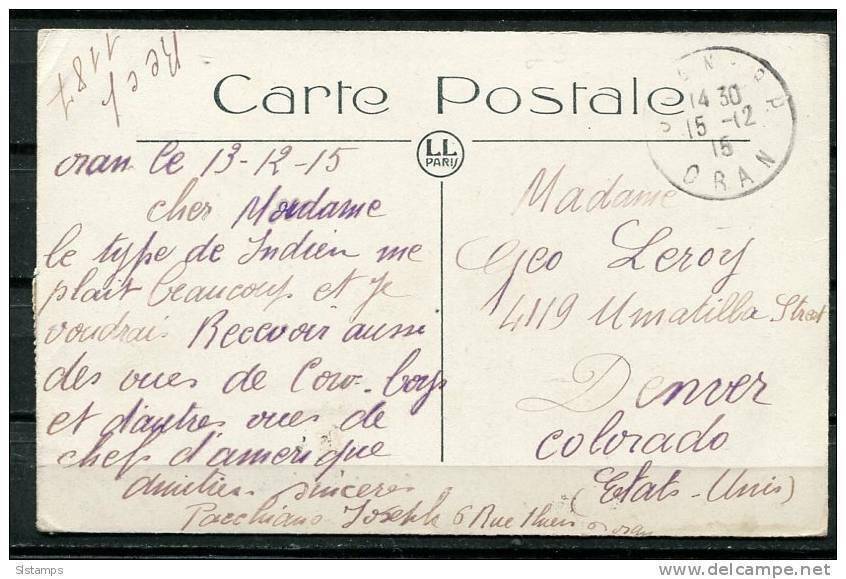 Carte Postale
LL
PARIS
14 30
15 -12
15
ORAN
1187
oran le 13-12-15
cher Madame
le type de Indien me
plait beaucoup et je
voudrai Recevoir aussi
des vues de Cow-boys
et d'autres vues de
chefs d'amerique
sinceres
Pacchiano Joseph 6 Rue
Madame
Geo Leroy
4119 Umatilla Street
Denver
Colorado
(Etats-Unis)
Slstamps
delcampe.net